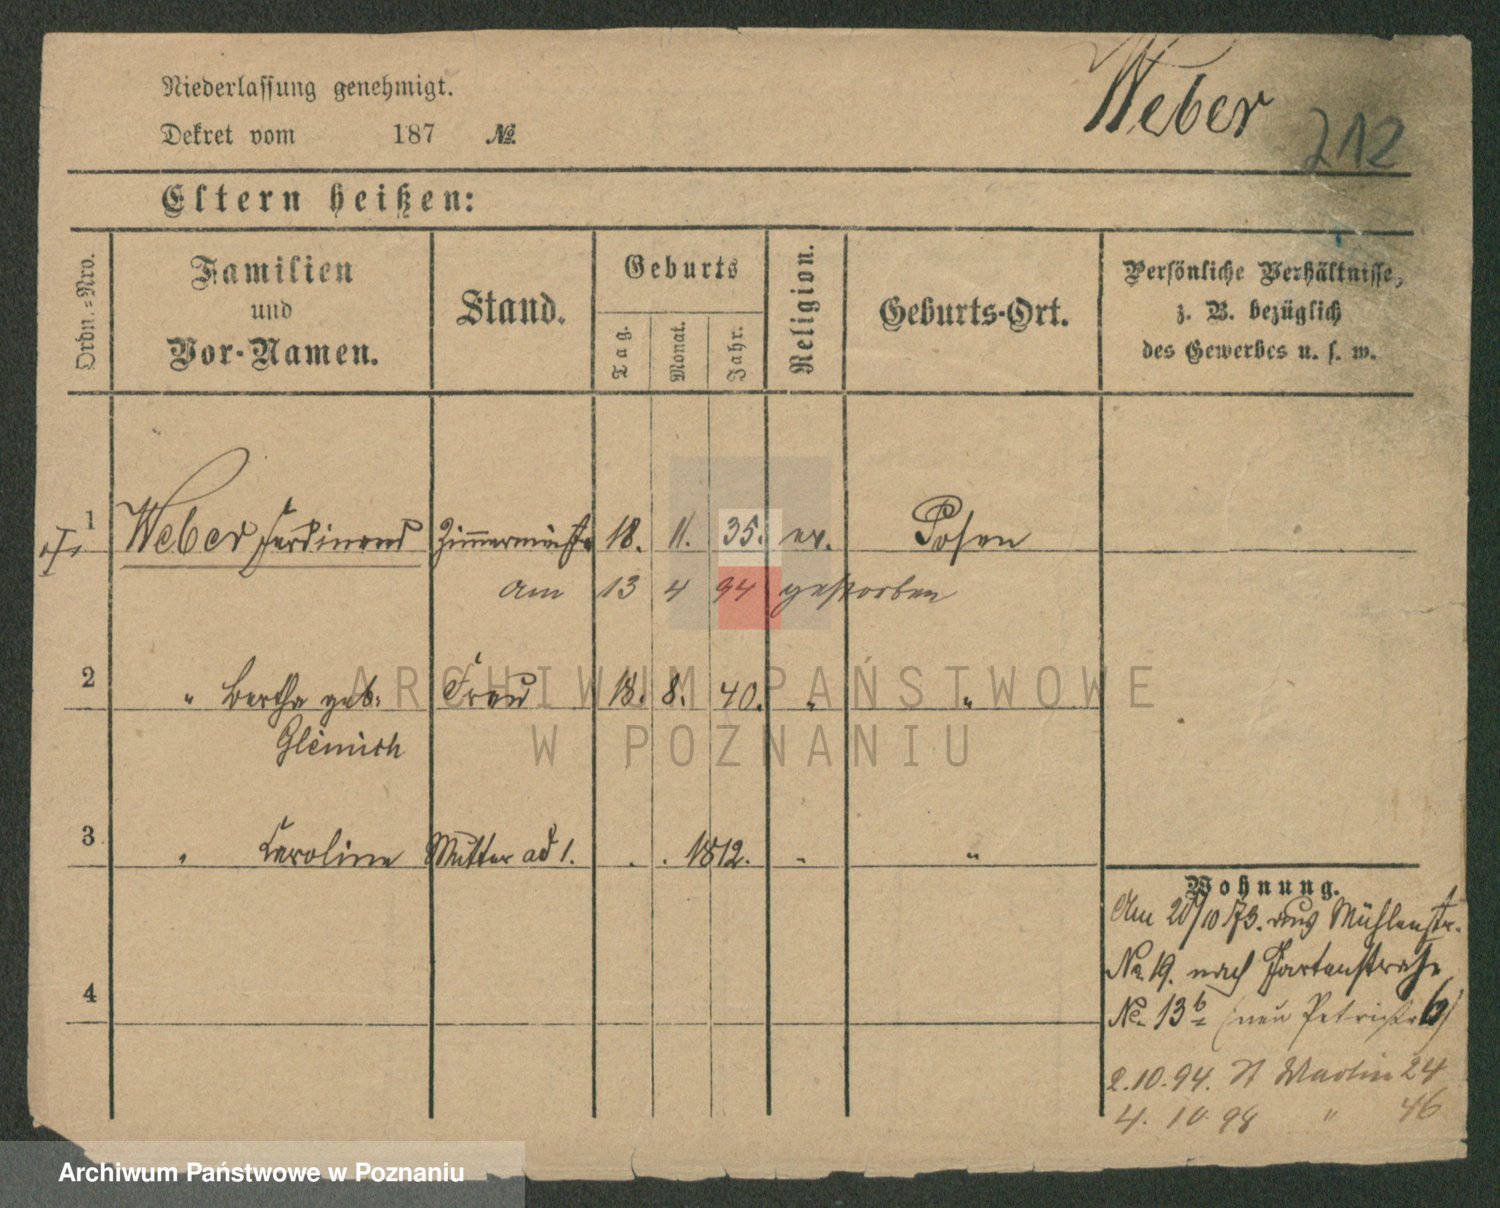 Niederlassung genehmigt.
Dekret vom 187 №
Weber
212
Eltern heißen:
Ordn.-Nro.
Familien
und
Vor-Namen.
Stand.
Geburts
Tag.
Monat.
Jahr.
Religion.
Geburts-Ort.
Persönliche Verhältnisse,
z. B. bezüglich
des Gewerbes u. s. w.
1 Weber Ferdinand Zimmermeistr 18. 11. 35. ev. Posen
am 13 4 94 gestorben
2 " Bertha geb: Frau 18. 8. 40. " "
Glémich
3 " Caroline Mutter ad 1. . . 1812. " "
4
Wohnung.
Am 20/10 73. aus Mühlenstr.
No 19. nach Gartenstraße
No 13b (neu Petristr 6)
2.10.94. St Martin 24
4. 10. 98 " 46
ARCHIWUM PAŃSTWOWE
W POZNANIU
Archiwum Państwowe w Poznaniu